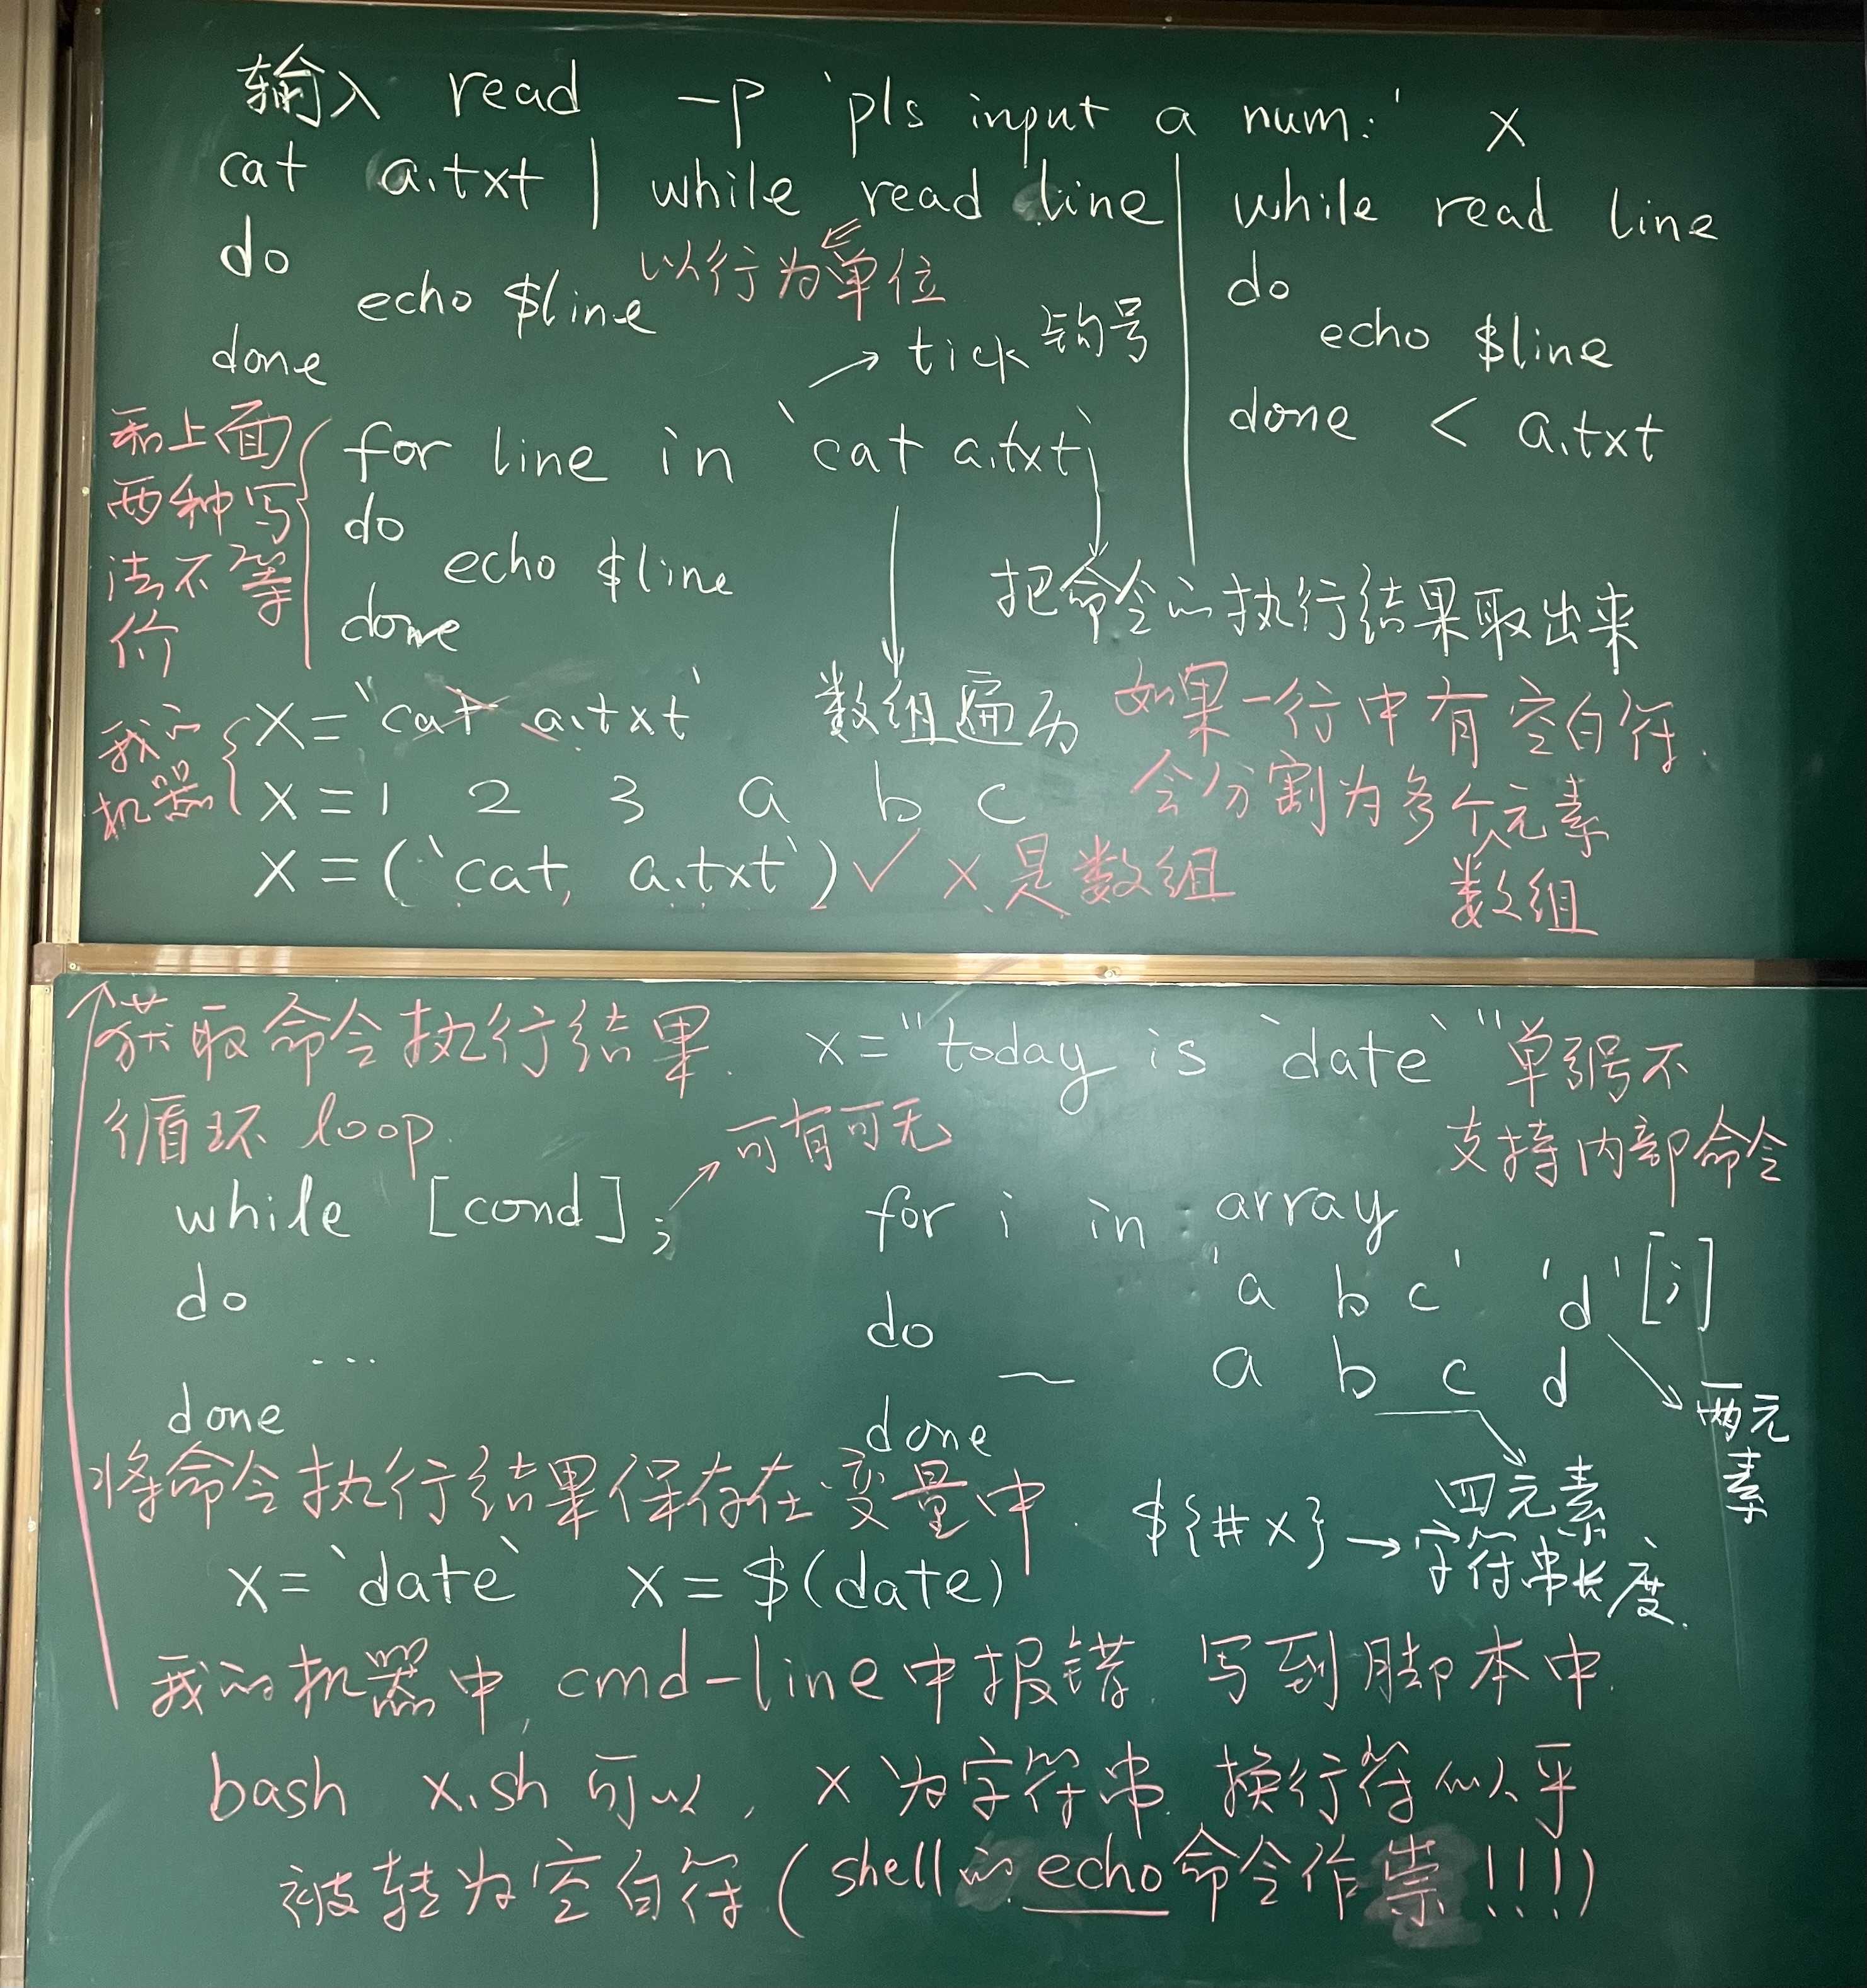 输入 read -p 'pls input a num:' x
cat a.txt | while read line
do
以行为单位
echo $line
done
while read line
do
echo $line
done < a.txt
tick 钩号
for line in `cat a.txt`
do
echo $line
done
和上面
两种写
法不等
价
把命令的执行结果取出来
数组遍历
我的
机器
x=`cat a.txt`
x=1 2 3 a b c
x=(`cat a.txt`) ✓ x是数组
如果一行中有空白符.
会分割为多个元素
数组
获取命令执行结果.
x="today is `date`"
单引号不
支持内部命令
循环 loop.
可有可无
while [cond];
do
...
done
for i in array
'a b c' 'd' [;]
do
~
a b c d
done
两元
素
四元素
将命令执行结果保存在变量中.
${#x} → 字符串长度.
x=`date` x=$(date)
我的机器中, cmd-line中报错. 写到脚本中.
bash x.sh 可以, x为字符串. 换行符似乎
被转为空白符(shell的echo命令作祟!!!)